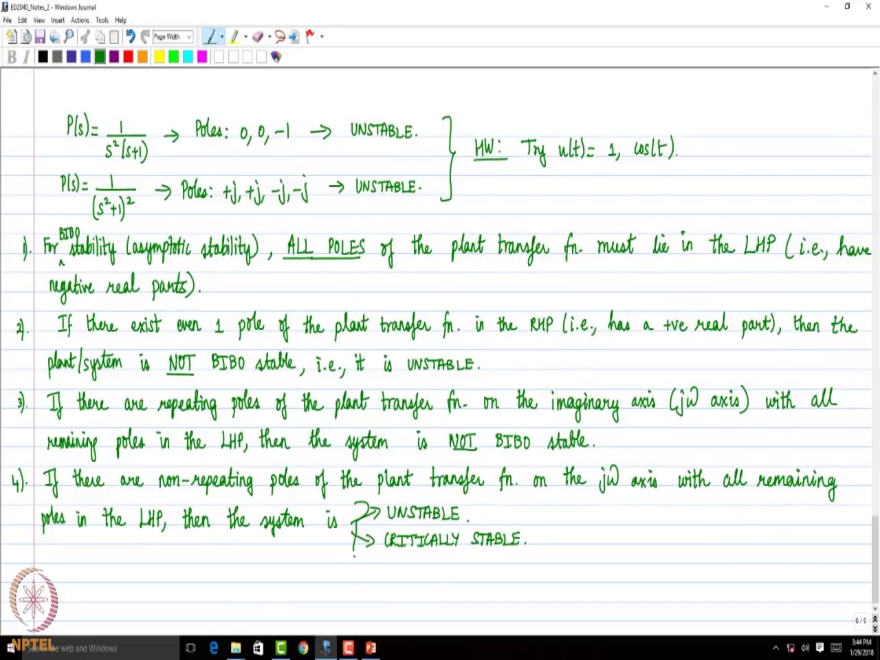 ED2040_Notes_2 - Windows Journal
File Edit View Insert Actions Tools Help
Page Width
B I
P(s) = 1/(s²(s+1)) → Poles: 0, 0, -1 → UNSTABLE.
HW: Try u(t) = 1, cos(t).
P(s) = 1/(s²+1)² → Poles: +j, +j, -j, -j → UNSTABLE.
1). For BIBO stability (asymptotic stability), ALL POLES of the plant transfer fn. must lie in the LHP (i.e., have
negative real parts).
2). If there exist even 1 pole of the plant transfer fn. in the RHP (i.e., has a +ve real part), then the
plant/system is NOT BIBO stable, i.e., it is UNSTABLE.
3). If there are repeating poles of the plant transfer fn. on the imaginary axis (jω axis) with all
remaining poles in the LHP, then the system is NOT BIBO stable.
4). If there are non-repeating poles of the plant transfer fn. on the jω axis with all remaining
poles in the LHP, then the system is → UNSTABLE.
→ CRITICALLY STABLE.
6/6
NPTEL
the web and Windows
3:44 PM
1/29/2018